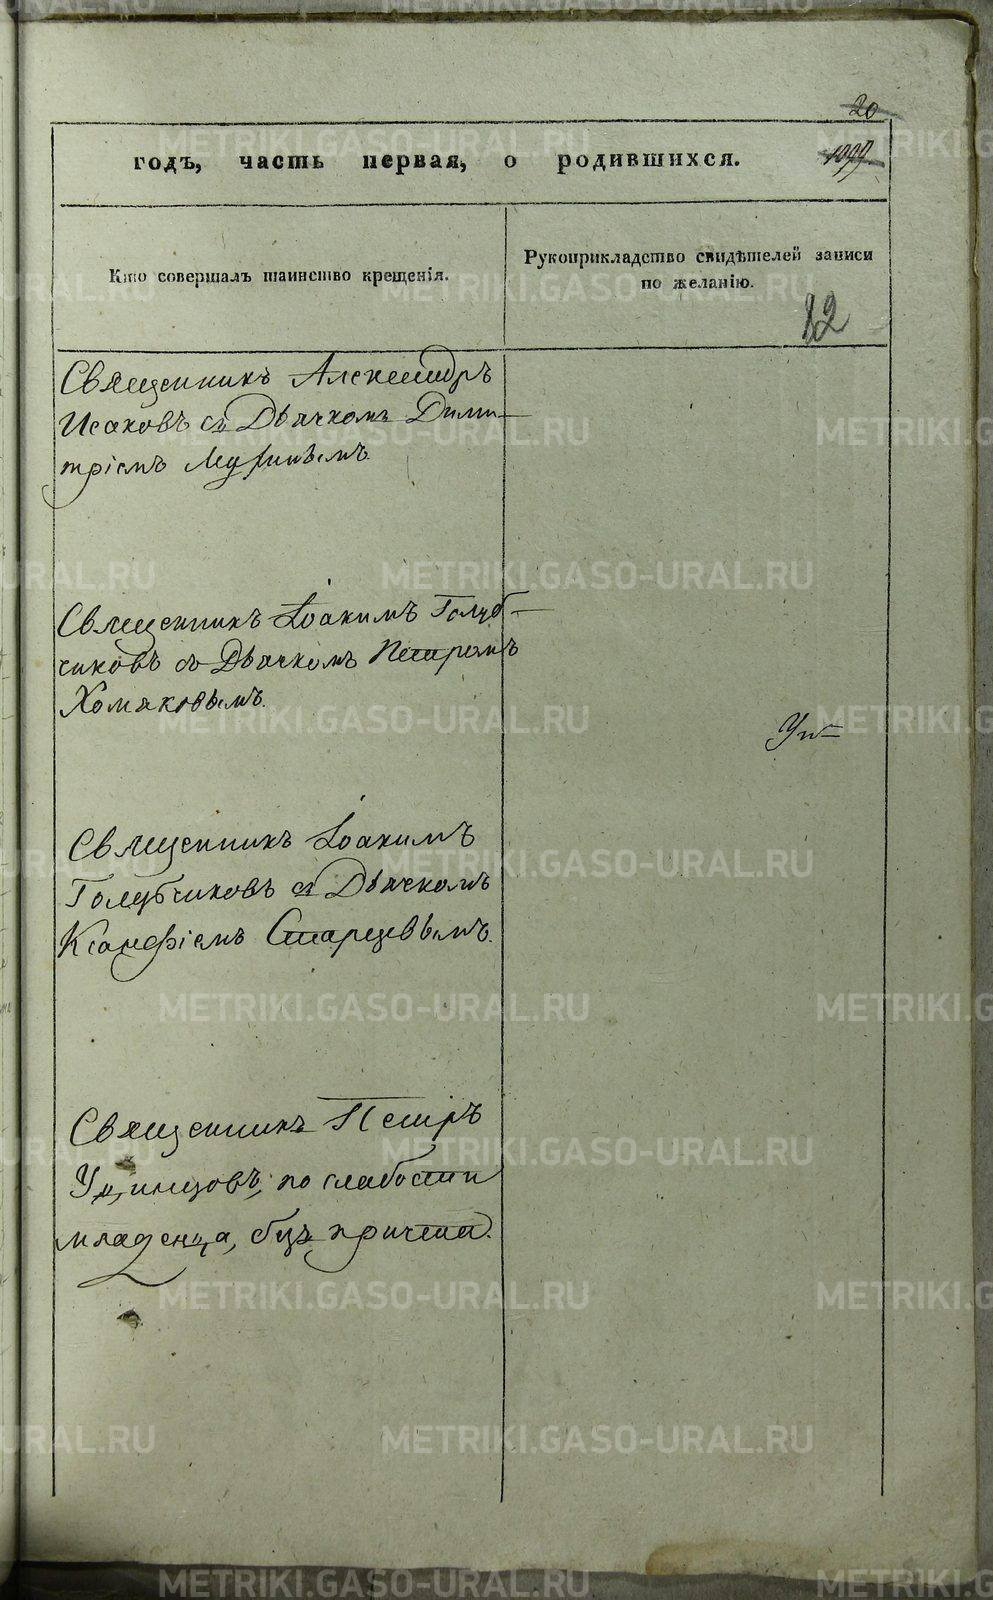 20
годъ, часть первая, о родившихся.
Кто совершалъ таинство крещенія.
Рукоприкладство свидѣтелей записи
по желанію.
12
Священникъ Александръ
Исаковъ съ Дьячкомъ Дими-
тріемъ
Священникъ Іоакимъ Голуб-
чиковъ съ Дьячкомъ Петромъ
Хомяковымъ.
Священникъ Іоакимъ
Голубчиковъ съ Дьячкомъ
Ксанфіемъ Старцевымъ.
Священникъ Петръ
по слабости
младенца, безъ причта.
METRIKI.GASO-URAL.RU